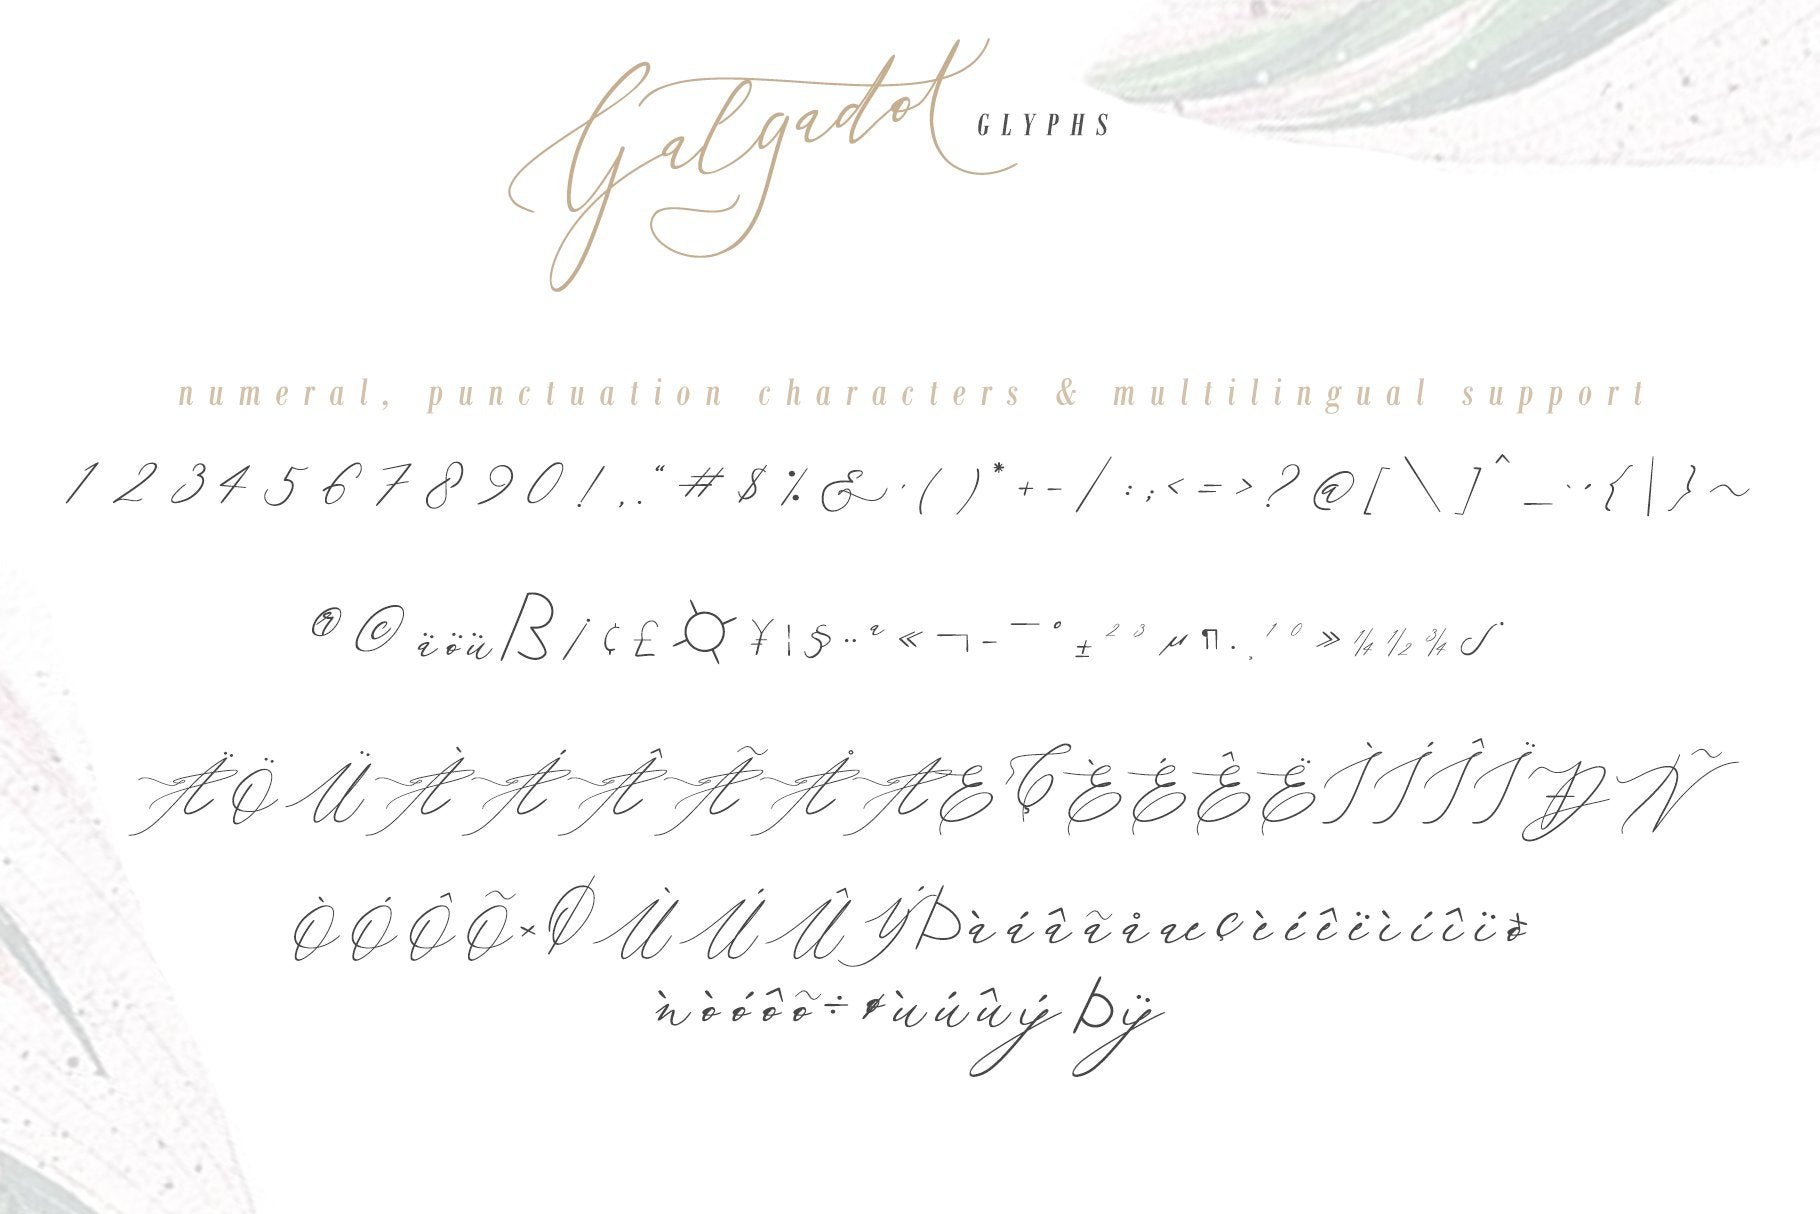 Galgadot GLYPHS
numeral, punctuation characters & multilingual support
1 2 3 4 5 6 7 8 9 0 ! , . “ # $ % & ' ( ) * + - / : ; < = > ? @ [ \ ] ^ _ ` ´ { | } ~
® © ä ö ü ß ¡ ¢ £ ¤ ¥ ¦ § ¨ ª « ¬ - ¯ ° ± ² ³ µ ¶ · ¸ ¹ º » ¼ ½ ¾ ¿
Ä Ö Ü À Á Â Ã Å Æ Ç È É Ê Ë Ì Í Î Ï Ð Ñ
Ò Ó Ô Õ × Ø Ù Ú Û Ý Þ à á â ã å æ ç è é ê ë ì í î ï ð
ñ ò ó ô õ ÷ ø ù ú û ý þ ÿ